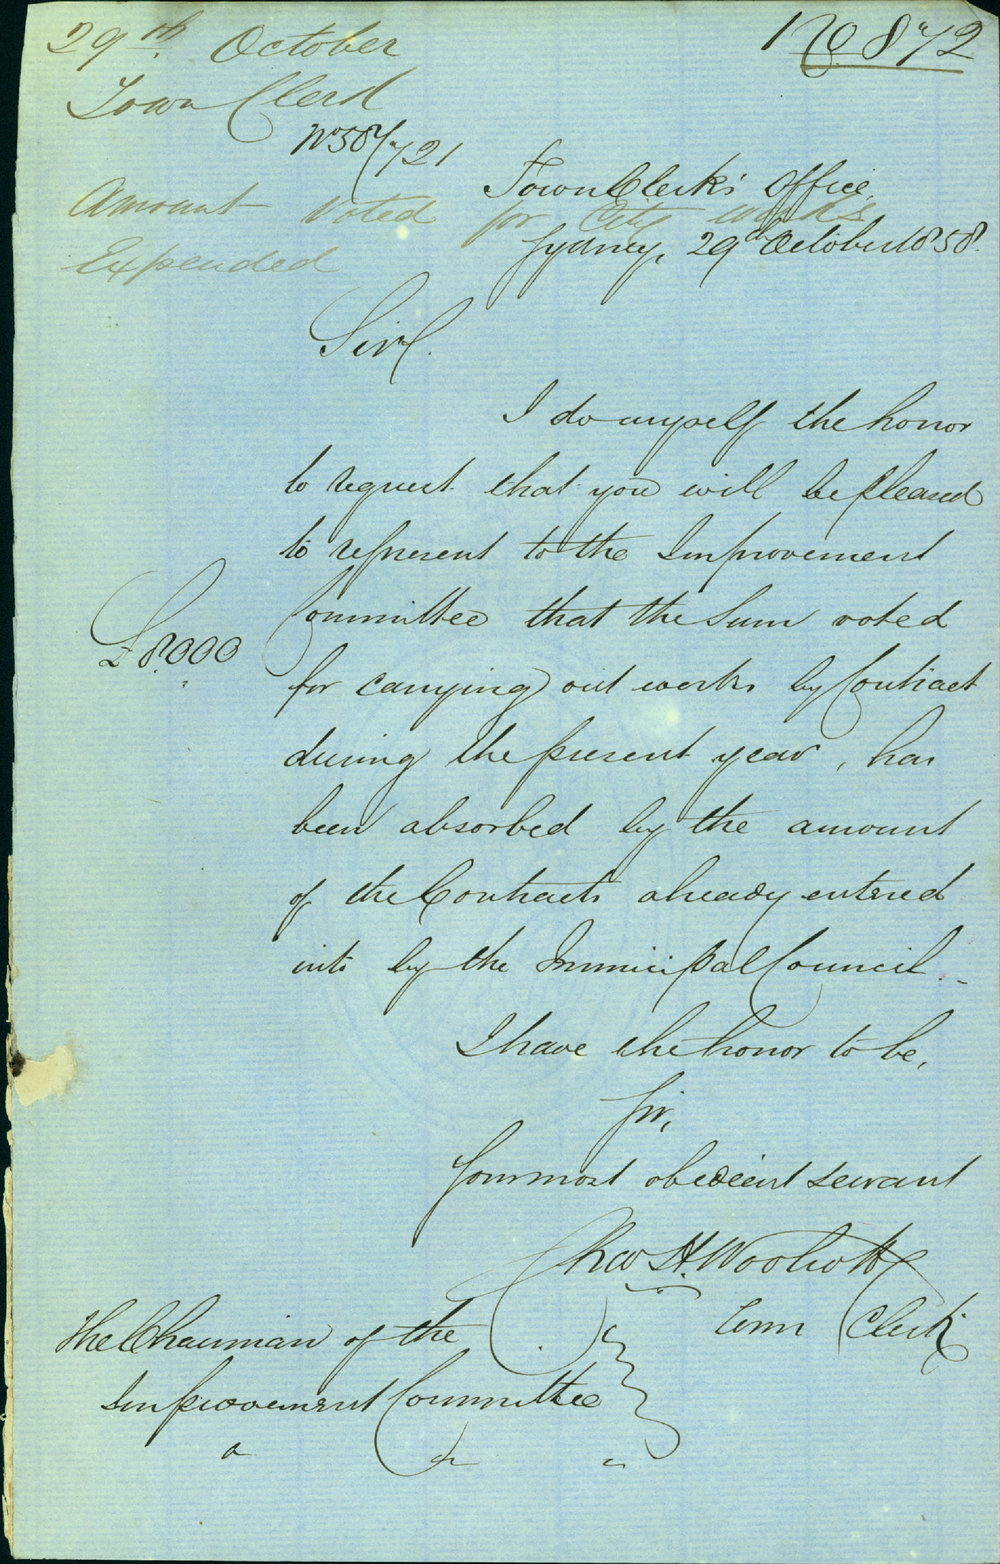 29th October
No 872
Town Clerk
No 58/721
Town Clerk's Office,
Amount voted for City works
Sydney, 29th October 1858.
Expended
Sir,
I do myself the honor
to request that you will be pleased
to represent to the Improvement
Committee that the Sum voted
£8000
for carrying out works by Contract
during the present year, has
been absorbed by the amount
of the Contracts already entered
into by the Municipal Council.
I have the honor to be,
Sir,
Your most obedient servant
Chas H. Woolcott
Town Clerk
The Chairman of the
Improvement Committee